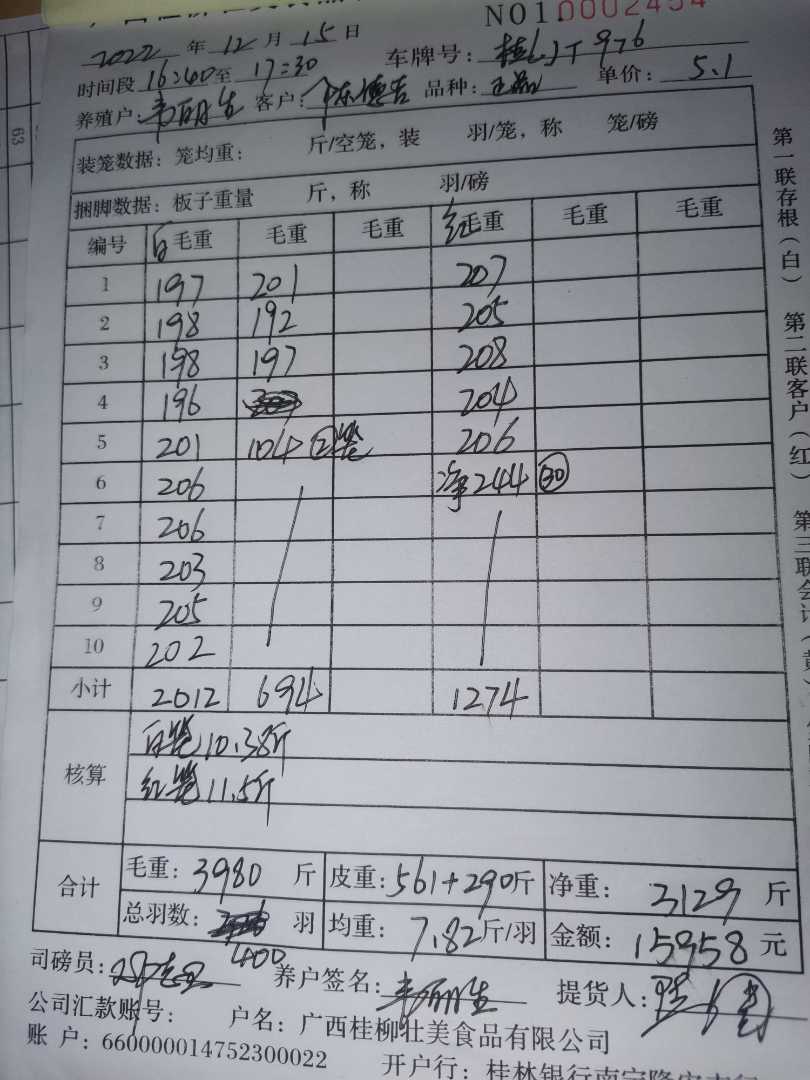 NO1.0002454
2022 年 12 月 15 日
时间段 16:40 至 17:30 车牌号: 976
养殖户: 韦丽生 客户: 陈德吉 品种: 正品 单价: 5.1
装笼数据: 笼均重: 斤/空笼, 装 羽/笼, 称 笼/磅
捆脚数据: 板子重量 斤, 称 羽/磅
编号 白毛重 毛重 毛重 红毛重 毛重 毛重
1 197 201 207
2 198 192 205
3 198 197 208
4 196 204
5 201 104 ②笼 206
6 206 净244 30
7 206
8 203
9 205
10 202
小计 2012 694 1274
核算
白笼10.38斤
红笼11.5斤
合计
毛重: 3980 斤 皮重: 561+290斤 净重: 3129 斤
总羽数: 400 羽 均重: 7.82斤/羽 金额: 15958 元
司磅员: 养户签名: 韦丽生 提货人:
公司汇款账号: 户名: 广西桂柳壮美食品有限公司
账 户: 660000014752300022 开户行: 桂林银行南宁隆安支行
第一联存根(白) 第二联客户(红) 第三联会计(黄)
63